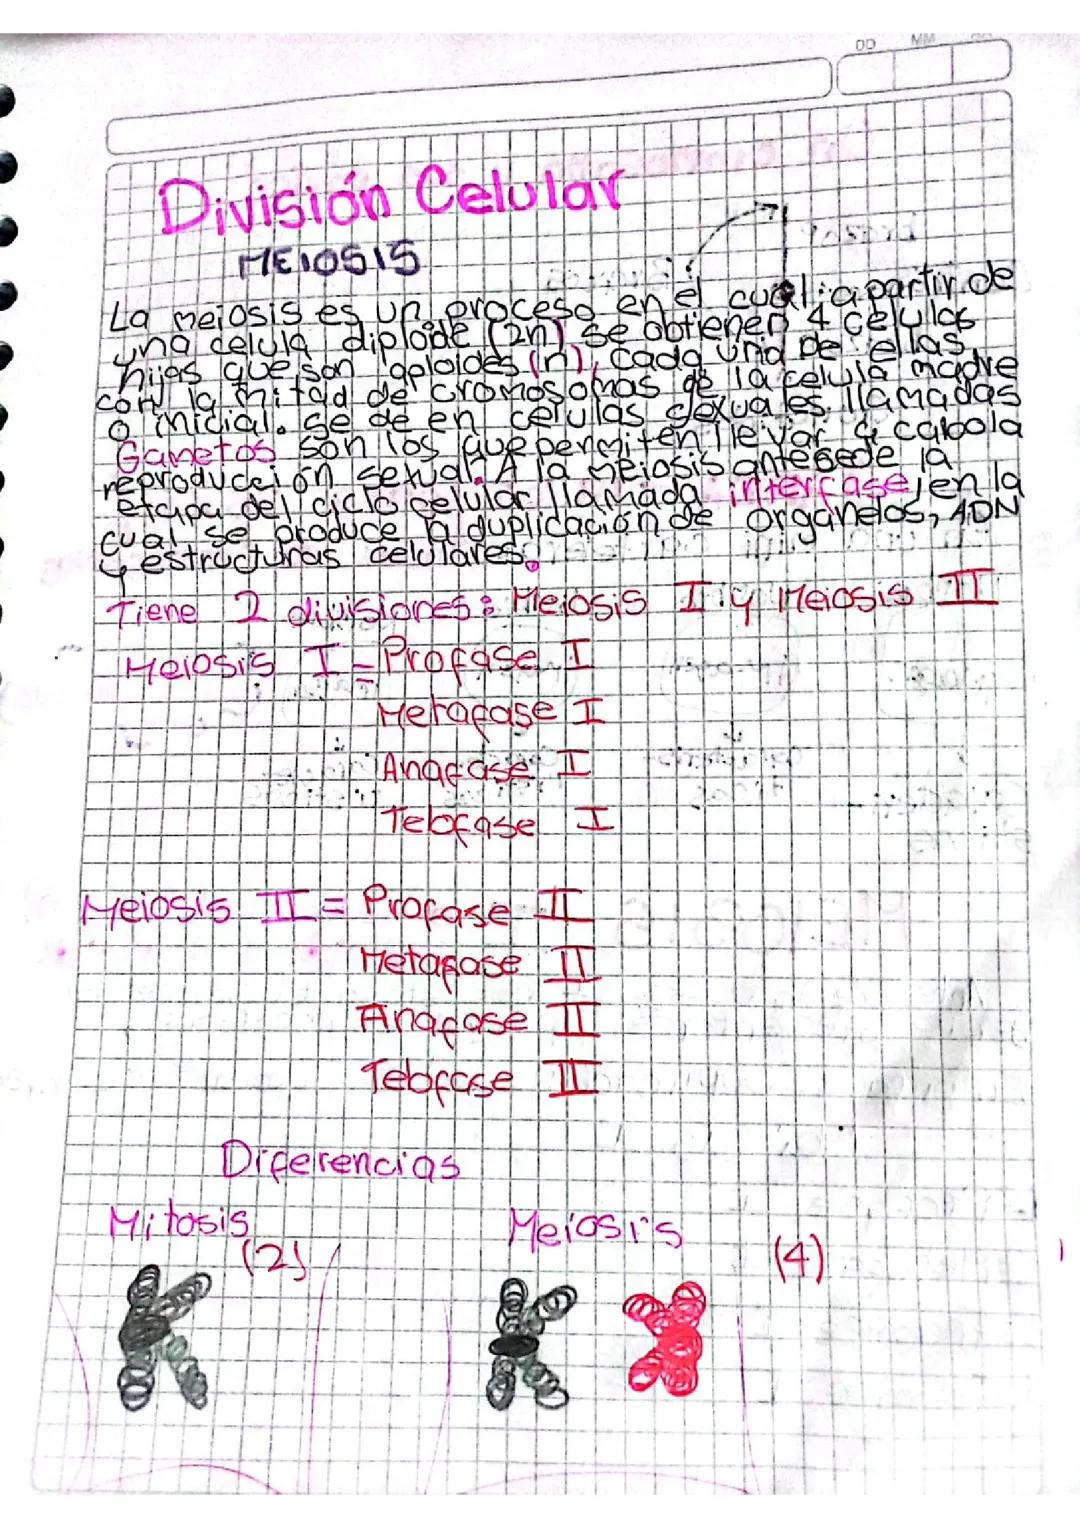 DD MM
División Celular
MEIOSIS
La meiosis es un proceso en el cual a partir de
una celula diploide (2n) se obtienen 4 celulas
hijas que son aploides (n), cada una de ellas
con la mitad de cromosomas de la celula madre
o inicial. se de en celulas sexuales llamadas
Gametos son los que permiten llevar a cabola
reproducción sexual. A la meiosis antesede la
etapa del ciclo celular llamada interfase, en la
cual se produce la duplicación de organelos, ADN
y estructuras celulares.
Tiene 2 divisiones: Meiosis I y Meiosis II
Meiosis I = Profase I
Metafase I
Anafase I
Telofase I
Meiosis II = Profase II
Metafase II
Anafase II
Telofase II
Diferencias
Mitosis Meiosis
(2) (4)